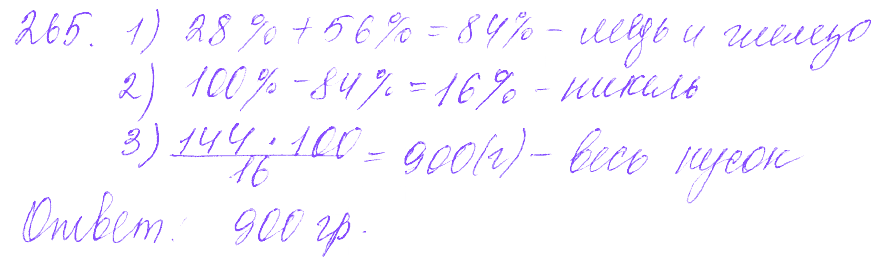 265. 1) 28% + 56% = 84% - медь и железо
2) 100% - 84% = 16% - никель
3) \frac{144 \cdot 100}{16} = 900(г) - весь кусок
Ответ: 900 гр.